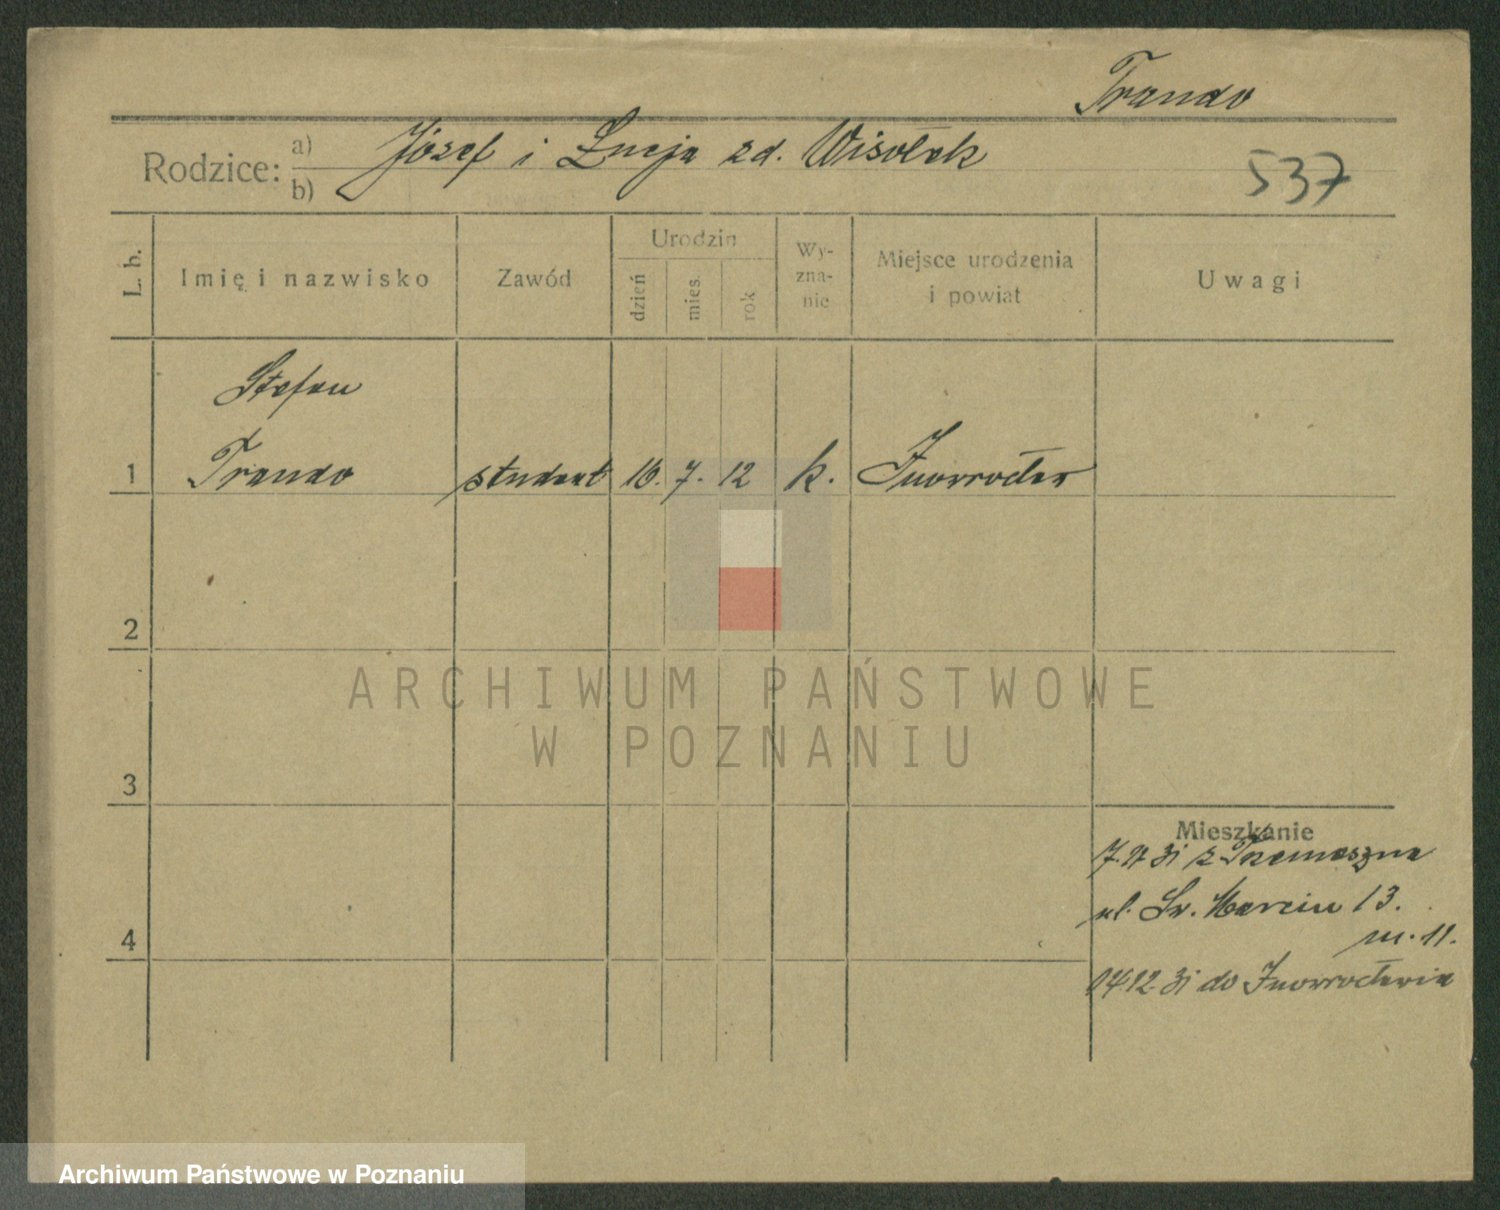 Trando
Rodzice: a) Józef i Łucja zd. Wisołek
b)
537
L. b.
Imię i nazwisko
Zawód
Urodzin
dzień
mies.
rok
Wy-
zna-
nie
Miejsce urodzenia
i powiat
Uwagi
Stefan
1 Trando student 16. 7. 12 k. Inowrocław
2
3
Mieszkanie
7. 31 z Trzemeszna
ul. Św. Marcin 13.
m. 11.
4
14.12 31 do Inowrocławia
ARCHIWUM PAŃSTWOWE
W POZNANIU
Archiwum Państwowe w Poznaniu